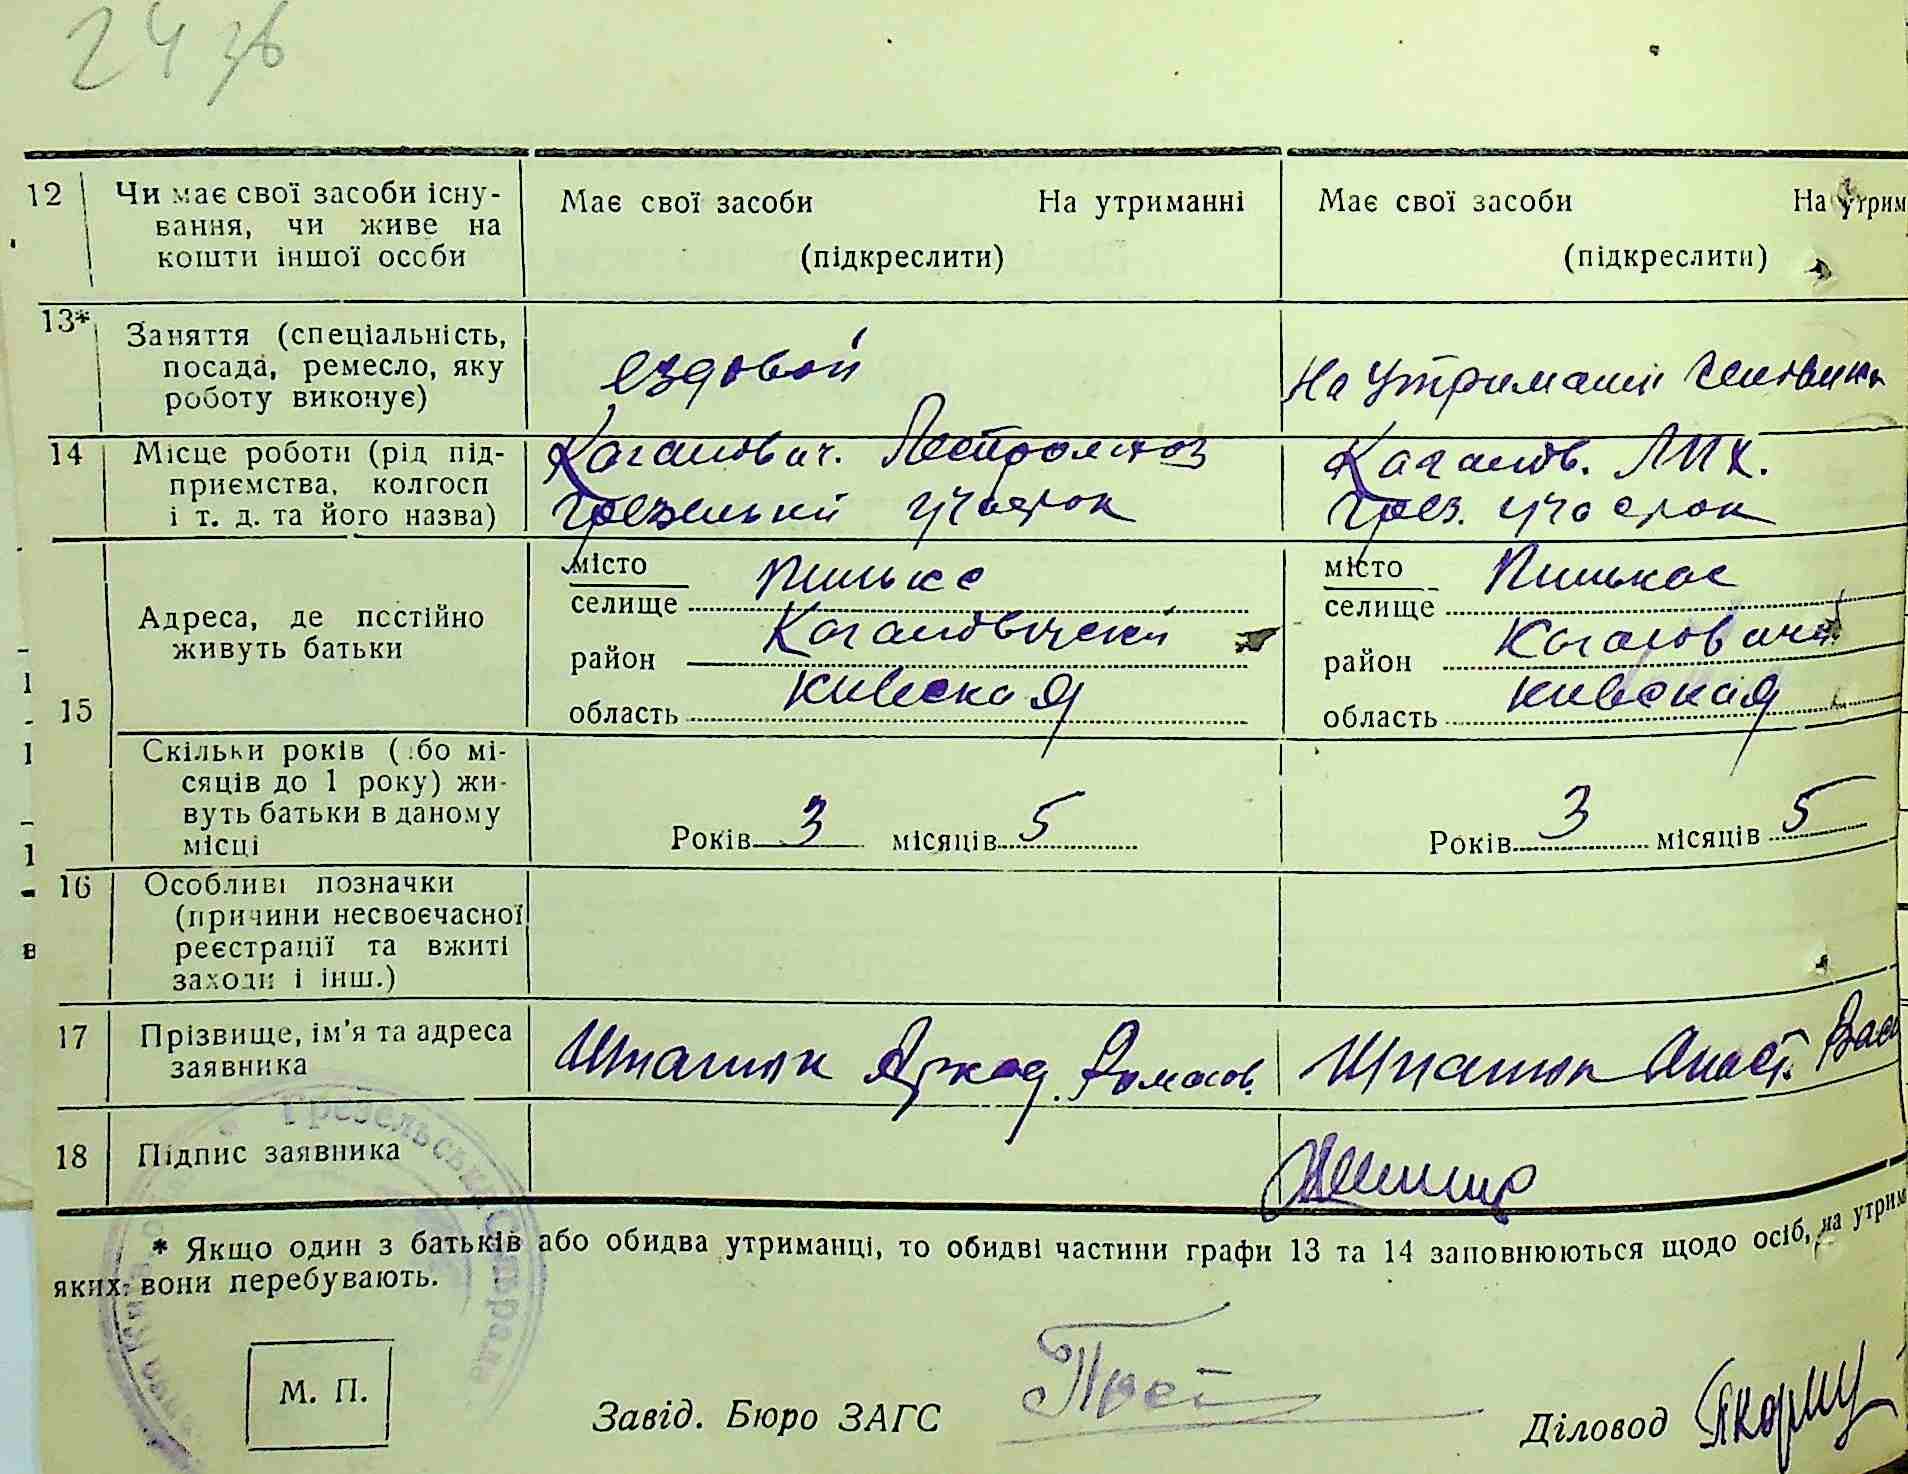 24 зв
12 Чи має свої засоби існу- Має свої засоби На утриманні Має свої засоби На утрим
вання, чи живе на
кошти іншої особи (підкреслити) (підкреслити)
13* Заняття (спеціальність,
посада, ремесло, яку ездовой На утримані
роботу виконує)
14 Місце роботи (рід під- Каганович. Каганов. ЛПХ.
приємства, колгосп
і т. д. та його назва) Грезельский участок Грез. участок
місто місто
селище селище
Адреса, де постійно Кагановический
живуть батьки район район
область Киевская область Киевская
15
Скільки років (або мі-
сяців до 1 року) жи-
вуть батьки в даному
місці Років 3 місяців 5 Років 3 місяців 5
16 Особливі позначки
(причини несвоєчасної
реєстрації та вжиті
заходи і інш.)
17 Прізвище, ім'я та адреса
заявника Аркад. Романов. Анаст. Вас
18 Підпис заявника
Грезельська Сільрада
* Якщо один з батьків або обидва утриманці, то обидві частини графи 13 та 14 заповнюються щодо осіб, на утрим
яких вони перебувають.
М. П.
Завід. Бюро ЗАГС
Діловод